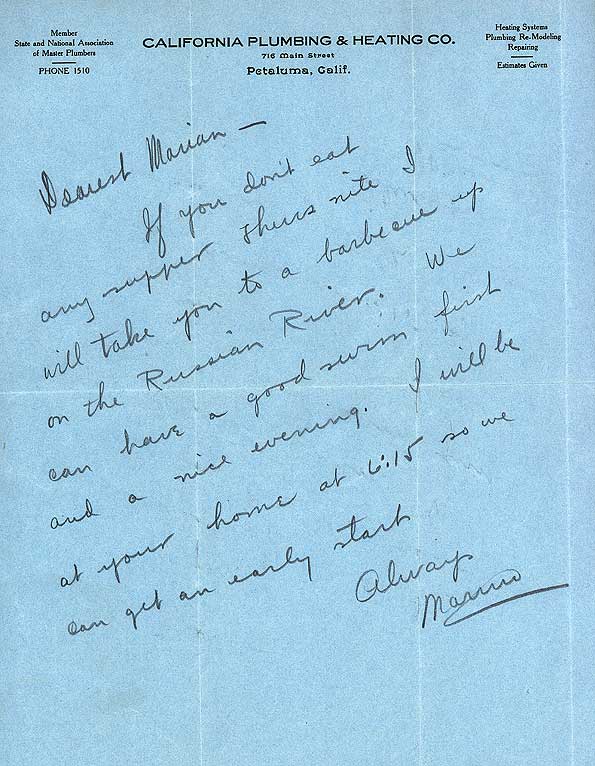 Member
State and National Association
of Master Plumbers
PHONE 1510
CALIFORNIA PLUMBING & HEATING CO.
716 Main Street
Petaluma, Calif.
Heating Systems
Plumbing Re-Modeling
Repairing
Estimates Given
Dearest Marian —
If you don't eat
any supper Thurs nite I
will take you to a barbecue up
on the Russian River. We
can have a good swim first
and a nice evening. I will be
at your home at 6:15 so we
can get an early start
Always